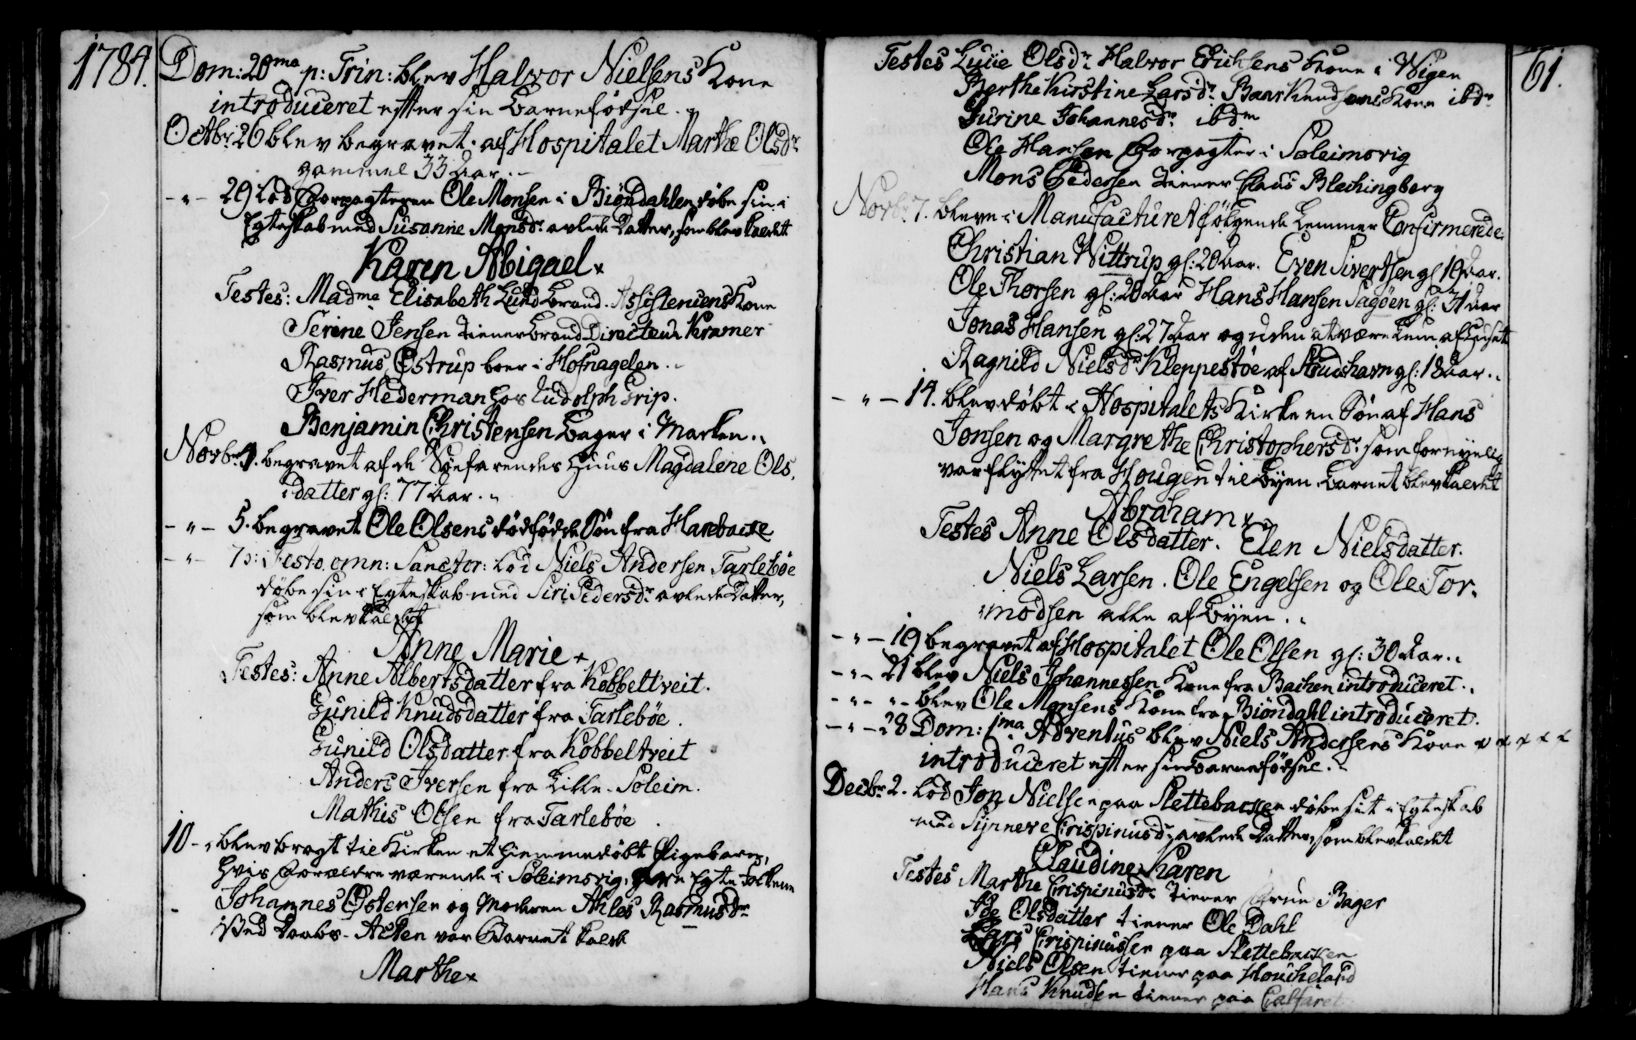 1784.
Dom: 20ma p: Trin: blev Halvor Nielsens Kone
introduceret efter sin Barnefødsel.
Octbr: 26 blev begravet af Hospitalet Marthe Olsdr
gammel 33 Aar.
- " - 29 Lod Forpagteren Ole Monsen i Biöndahlen døbe sin i
Egteskab med Susanne Monsdr: avlede Datter, som blev kaldet
Karen Abigael
Testes: Madme Elisabeth Lund Brand-Assistencens Kone
Serine Jensen tiener Brand Directeur Kramer
Rasmus Estrup boer i Hofnagelen.
Iver Hederman hos Rudolph Grip.
Benjamin Christensen Bager i Marken.
Novbr: 1. begravet af de Søefarendes Huus Magdalene Ols-
datter gl: 77 Aar.
- " - 5. begravet Ole Olsens dødfødde Søn fra
- " - 7 p: Festo omn: Sanctor: lod Niels Andersen Tarlebøe
døbe sin i Egteskab med Siri Pedersdr: avlede Datter,
som blev kaldet
Anne Marie
Testes: Anne Albertsdatter fra Kobbeltveit.
Gunild Knudsdatter fra Tarlebøe.
Gunild Olsdatter fra Kobbeltveit
Anders Iversen fra Lille-Soleim.
Mathis Olsen fra Tarlebøe.
10 - blev bragt til Kirken et hiemmedøbt Pigebarn,
hvis Forældre værende i Soleimsvig, Egte Folkene
Johannes Østensen og Moderen Ahles Rasmusdr
Ved Daabs-Acten var Barnet kaldt
Marthe
61.
Testes Lucie Olsdr: Halvor Erichsens Kone i Wigen
Berthe Kirstine Larsdr: Knudsens Kone ibdm
Gurine Johannesdr: ibdm
Ole Hansen Forpagter i Soleimsvig
Mons Pedersen tiener Claus Blechingberg
Novbr: 7. bleve i Manufacturet følgende Lemmer Confirmerede
Christian Wittrup gl: 20 Aar. Even Sivertsen gl 19 Aar.
Ole Thorsen gl: 20 Aar Hans Hansen Sagöen gl: 31 Aar
Jonas Hansen gl: 27 Aar og uden at være Lem af Huset
Ragnild Nielsdr: Kleppestøe af gl: 18 Aar.
- " - 14. blev døbt i Hospitalets Kirke en Søn af Hans
Jonsen og Margrethe Christophersdr: som fornylig
var flyttet fra Hougen til Byen. Barnet blev kaldet
Abraham
Testes Anne Olsdatter. Elen Nielsdatter.
Niels Larsen. Ole Engelsen og Ole Tor-
modsen alle af Byen.
- " - 19 begravet af Hospitalet Ole Olsen gl: 30 Aar.
- " - 21 blev Niels Johannessen Kone fra Bachen introduceret.
- " - " - blev Ole Monsens Kone fra Biöndahl introduceret.
- " - 28 Dom: 1ma Adventus blev Niels Andersens Kone
introduceret efter sin Barnefødsel.
Decbr 2. lod Jon Nielsen paa Slettebacken døbe sit i Egteskab
med Synneve Crispinusdr: avlede Datter, som blev kaldet
Claudine Karen
Testes Marthe Crispinusdr: tiener Bager
Olsdatter tiener Ole Dahl
Lars Crispinussen paa Slettebacken
Niels Olsen tiener paa Houcheland
Hans Knudsen tiener paa Calfaret